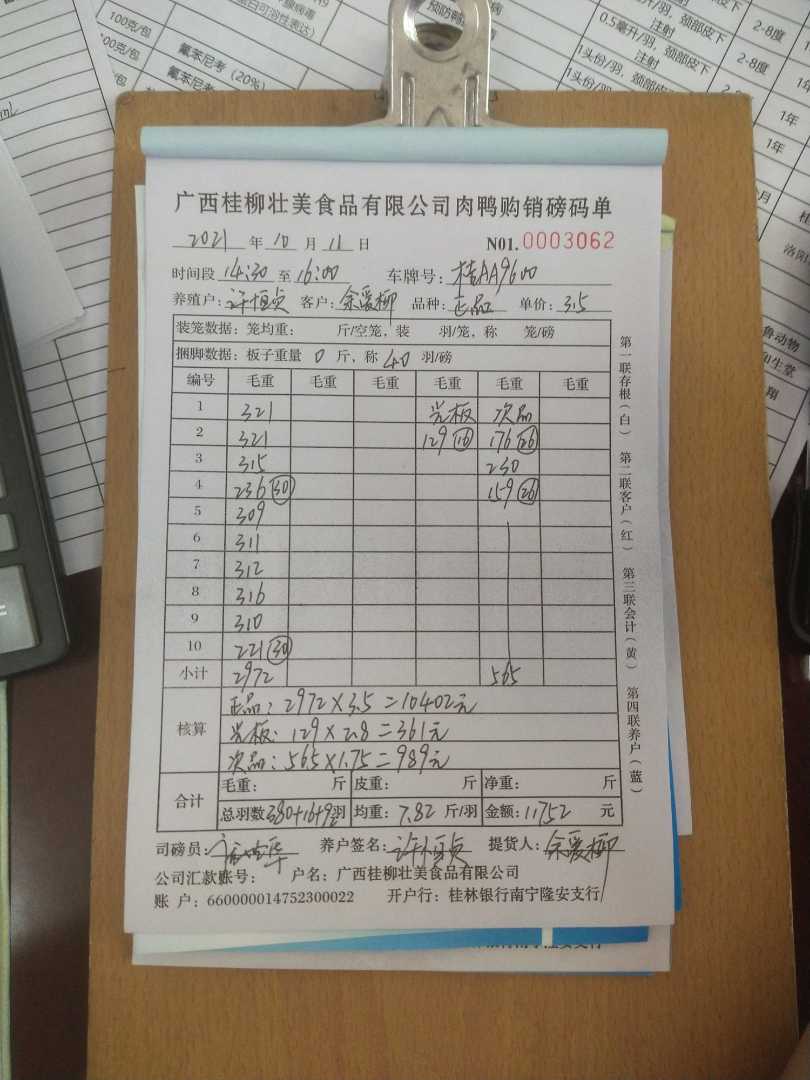 100克/包
100克/包
氟苯尼考（20%）
氟苯尼考
预防鸭
0.5毫升/羽，颈部皮下注射
1头份/羽，颈部皮下注射
1头份/羽，颈部皮下
2-8度
2-8度
1年
1年
1年
洛阳
鲁动物
和生堂
翔
广西桂柳壮美食品有限公司肉鸭购销磅码单
2021 年 10 月 11 日 N01.0003062
时间段 14:30 至 16:00 车牌号：桂AA9600
养殖户：许恒贞 客户：余爱柳 品种：正品 单价：3.5
装笼数据：笼均重： 斤/空笼，装 羽/笼，称 笼/磅
捆脚数据：板子重量 0 斤，称 40 羽/磅
编号 毛重 毛重 毛重 毛重 毛重 毛重
1 321 光板 次品
2 321 129 (16) 176 (26)
3 315 230
4 236 (30) 159 (26)
5 309
6 311
7 312
8 316
9 310
10 221 (30)
小计 2972 565
核算
正品：2972×3.5=10402元
光板：129×2.8=361元
次品：565×1.75=989元
合计
毛重： 斤 皮重： 斤 净重： 斤
总羽数380+16+92羽 均重：7.82 斤/羽 金额：11752 元
司磅员： 养户签名：许恒贞 提货人：余爱柳
公司汇款账号： 户名：广西桂柳壮美食品有限公司
账 户：660000014752300022 开户行：桂林银行南宁隆安支行
第一联存根（白） 第二联客户（红） 第三联会计（黄） 第四联养户（蓝）